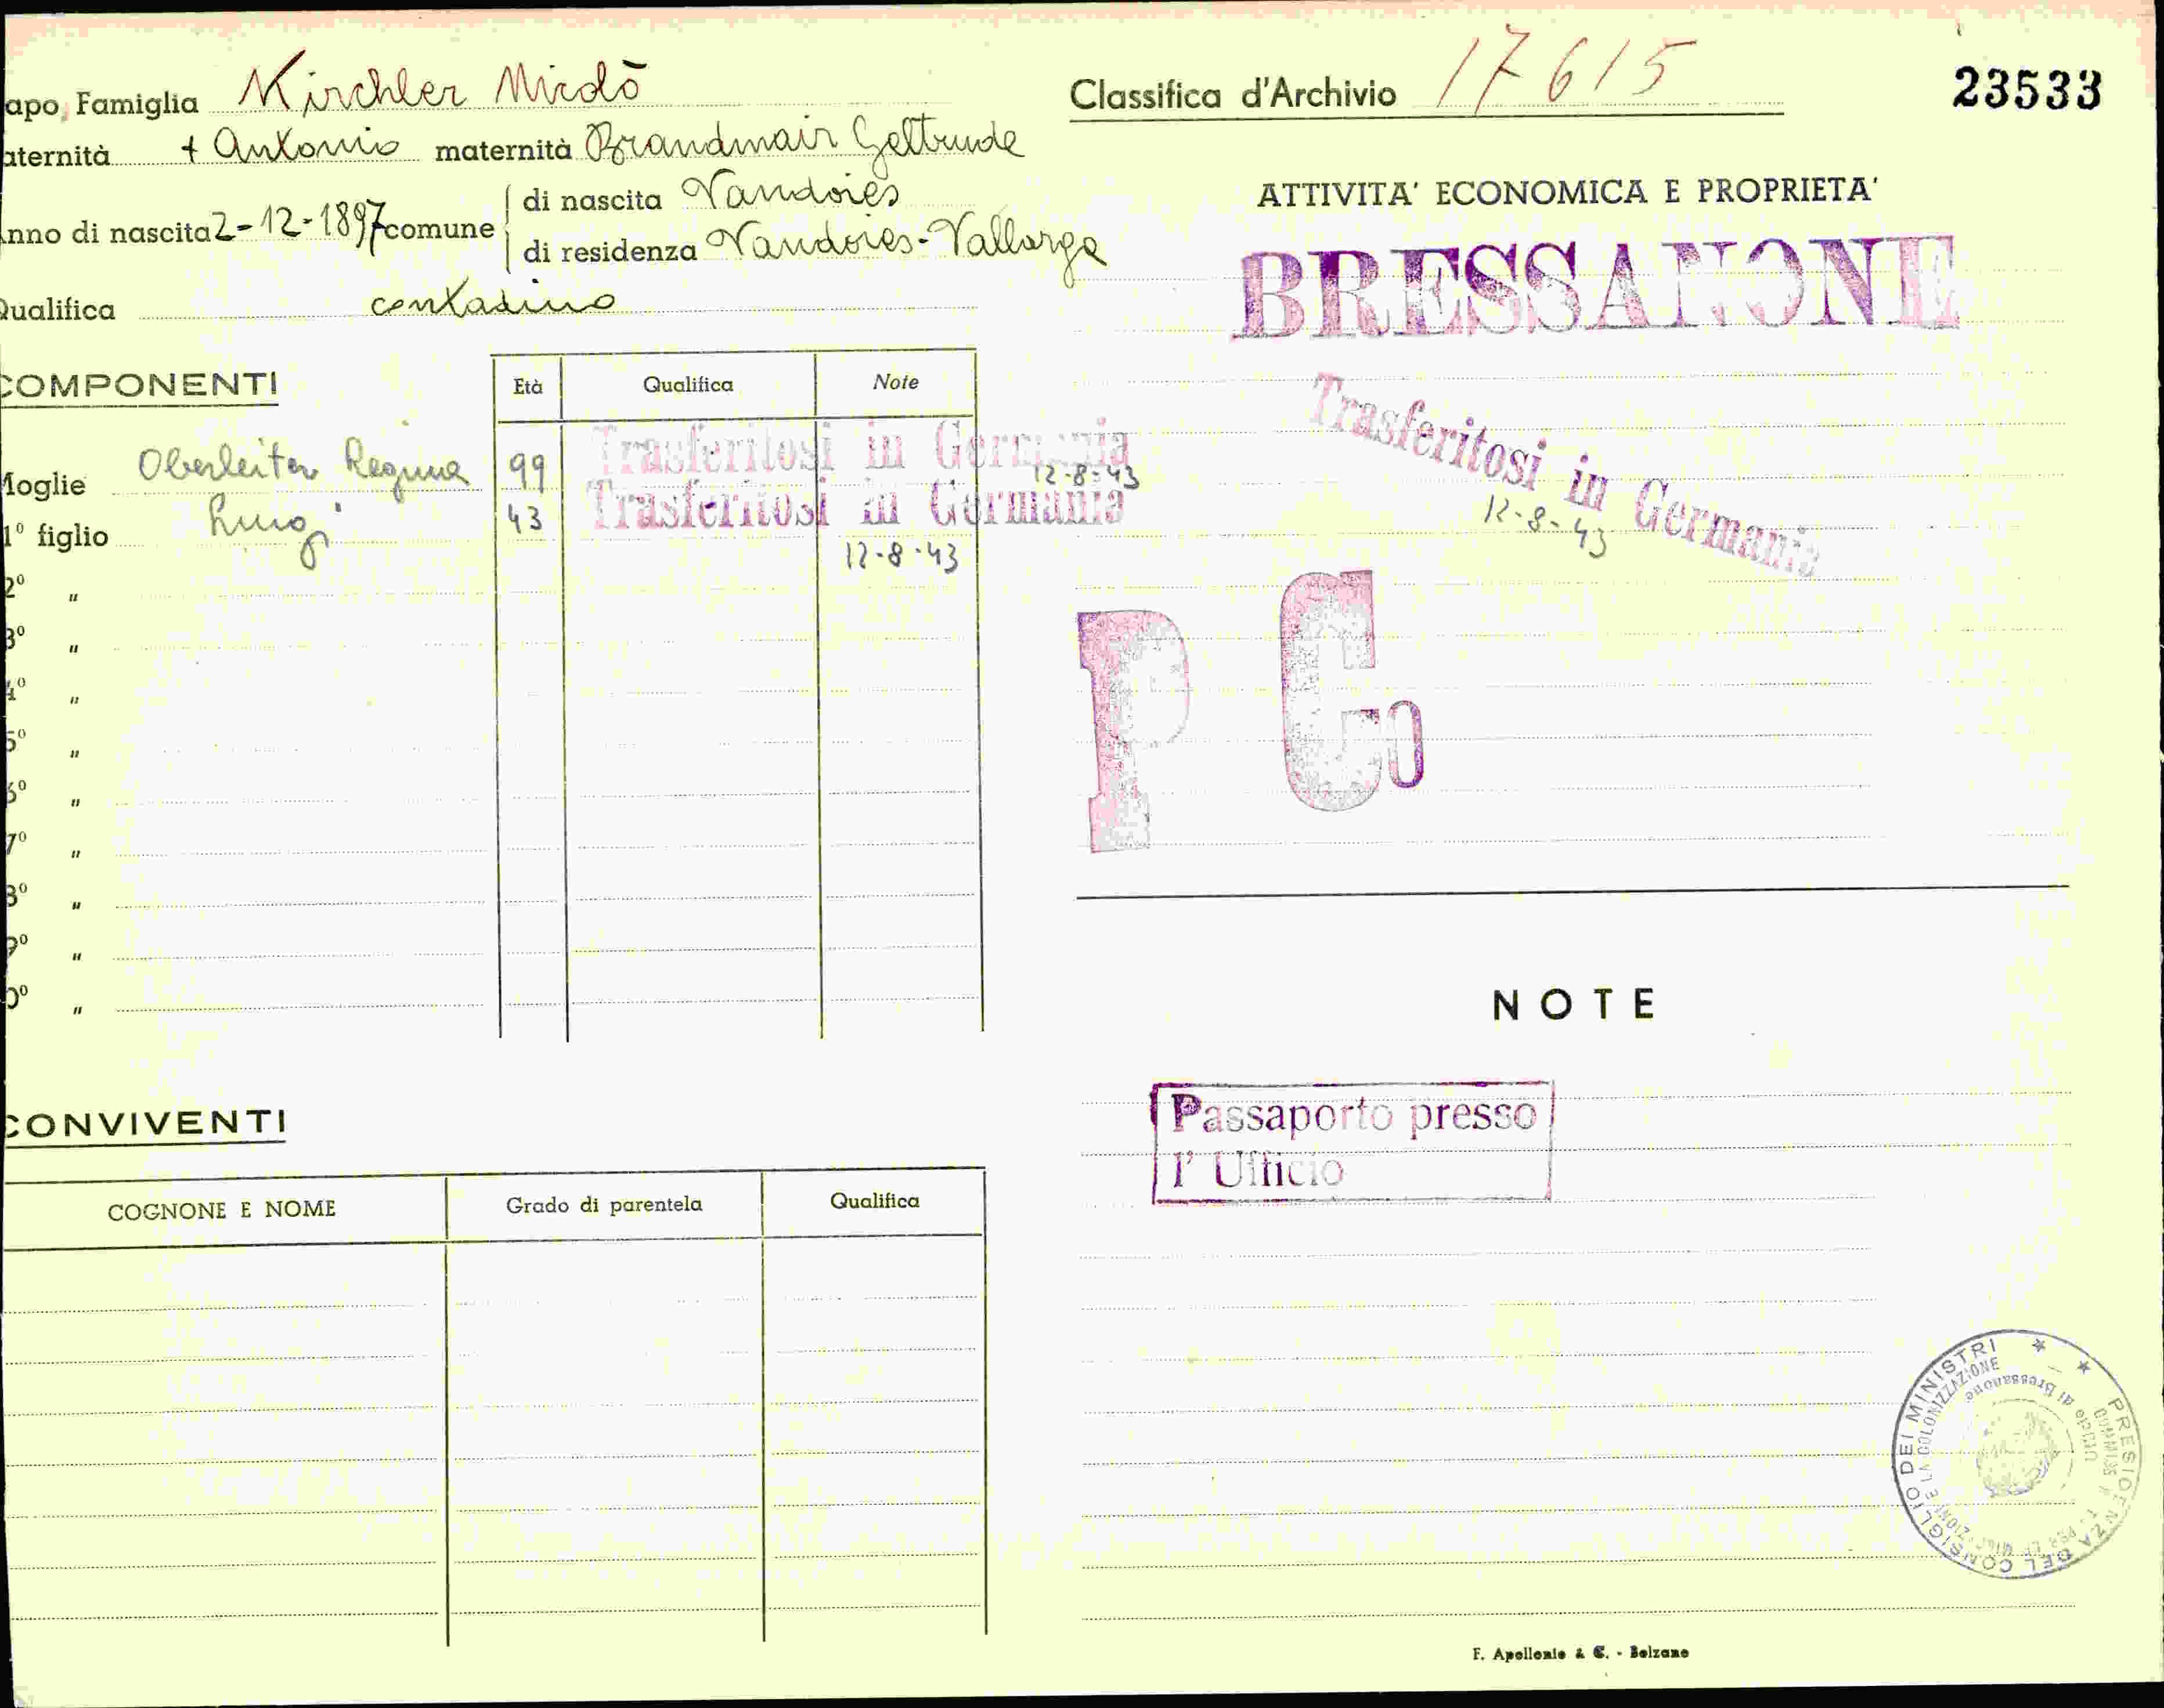 apo Famiglia Kirchler Nicolò
aternità + Antonio maternità Brandmair Geltrude
nno di nascita 2-12-1897 comune
di nascita Vandoies
di residenza Vandoies-Vallarga
Qualifica contadino
COMPONENTI
Età Qualifica Note
Moglie Oberleiter Regina 99 Trasferitosi in Germania
12-8-43
1º figlio Luigi 43 Trasferitosi in Germania
12-8-43
2º "
3º "
4º "
5º "
6º "
7º "
8º "
9º "
0º "
CONVIVENTI
COGNONE E NOME Grado di parentela Qualifica
Classifica d'Archivio 17615
23533
ATTIVITA' ECONOMICA E PROPRIETA'
BRESSANONE
Trasferitosi in Germania
12-8-43
P Co
NOTE
Passaporto presso
l' Ufficio
PRESIDENZA DEL CONSIGLIO DEI MINISTRI
E LA COLONIZZAZIONE
Ufficio di Bressanone
F. Apollonio & C. - Bolzano